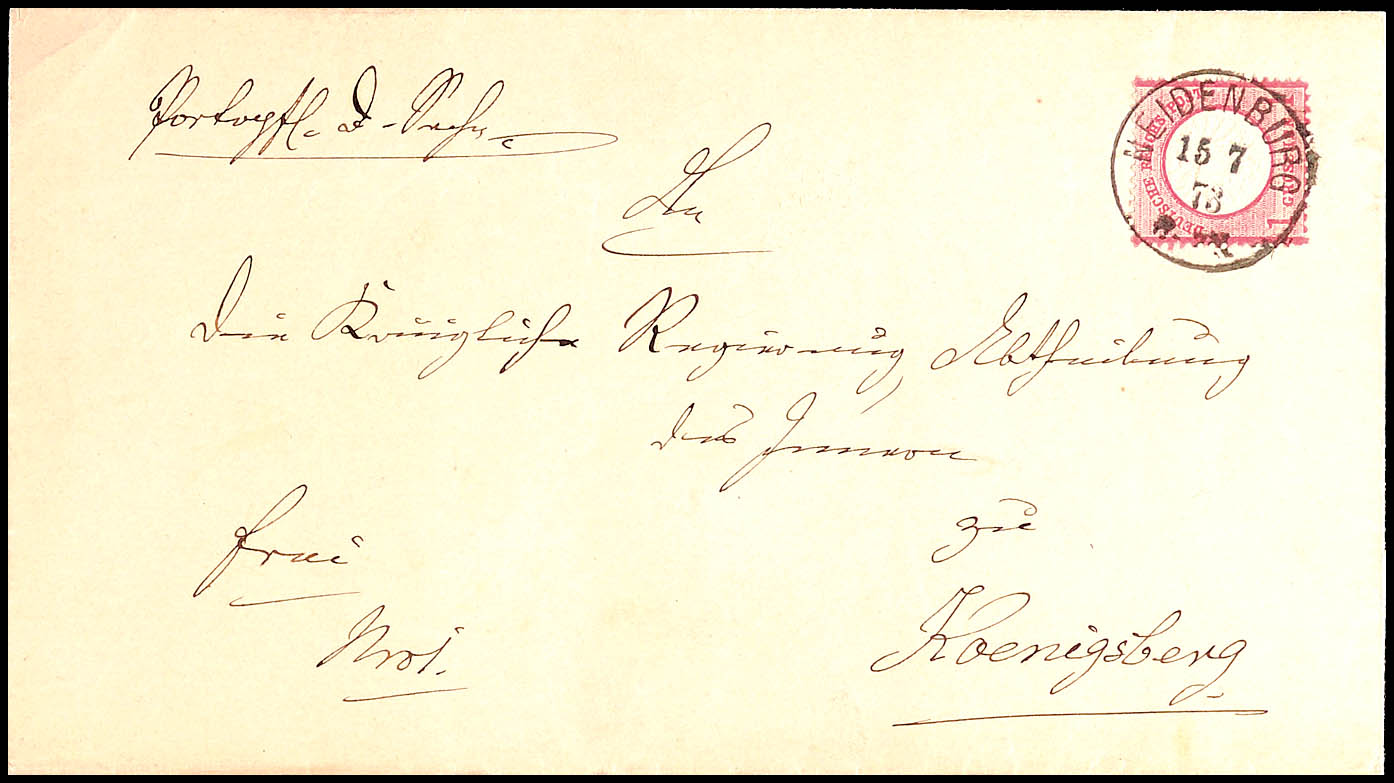 Portopfl. D. Sache
NEIDENBURG
15 7
73
DEUTSCHE REICHS POST
1 GROSCHEN
An
Die Königliche Regierung, Abtheilung
des Innern
zu
Koenigsberg
frei
No 1.